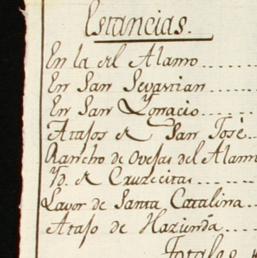 Estancias.
En la del Alamo
En San Sevastian
En San Ygnacio
Atajos de San José
Rancho de Ovejas del Alam
Yd. de Cruzecitas
Lavor de Santa Catalina
Atajo de Hazienda
Totales